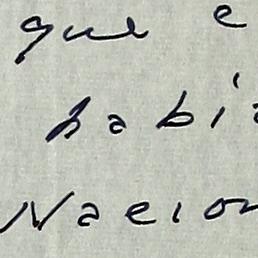 que e
habí
Nacion